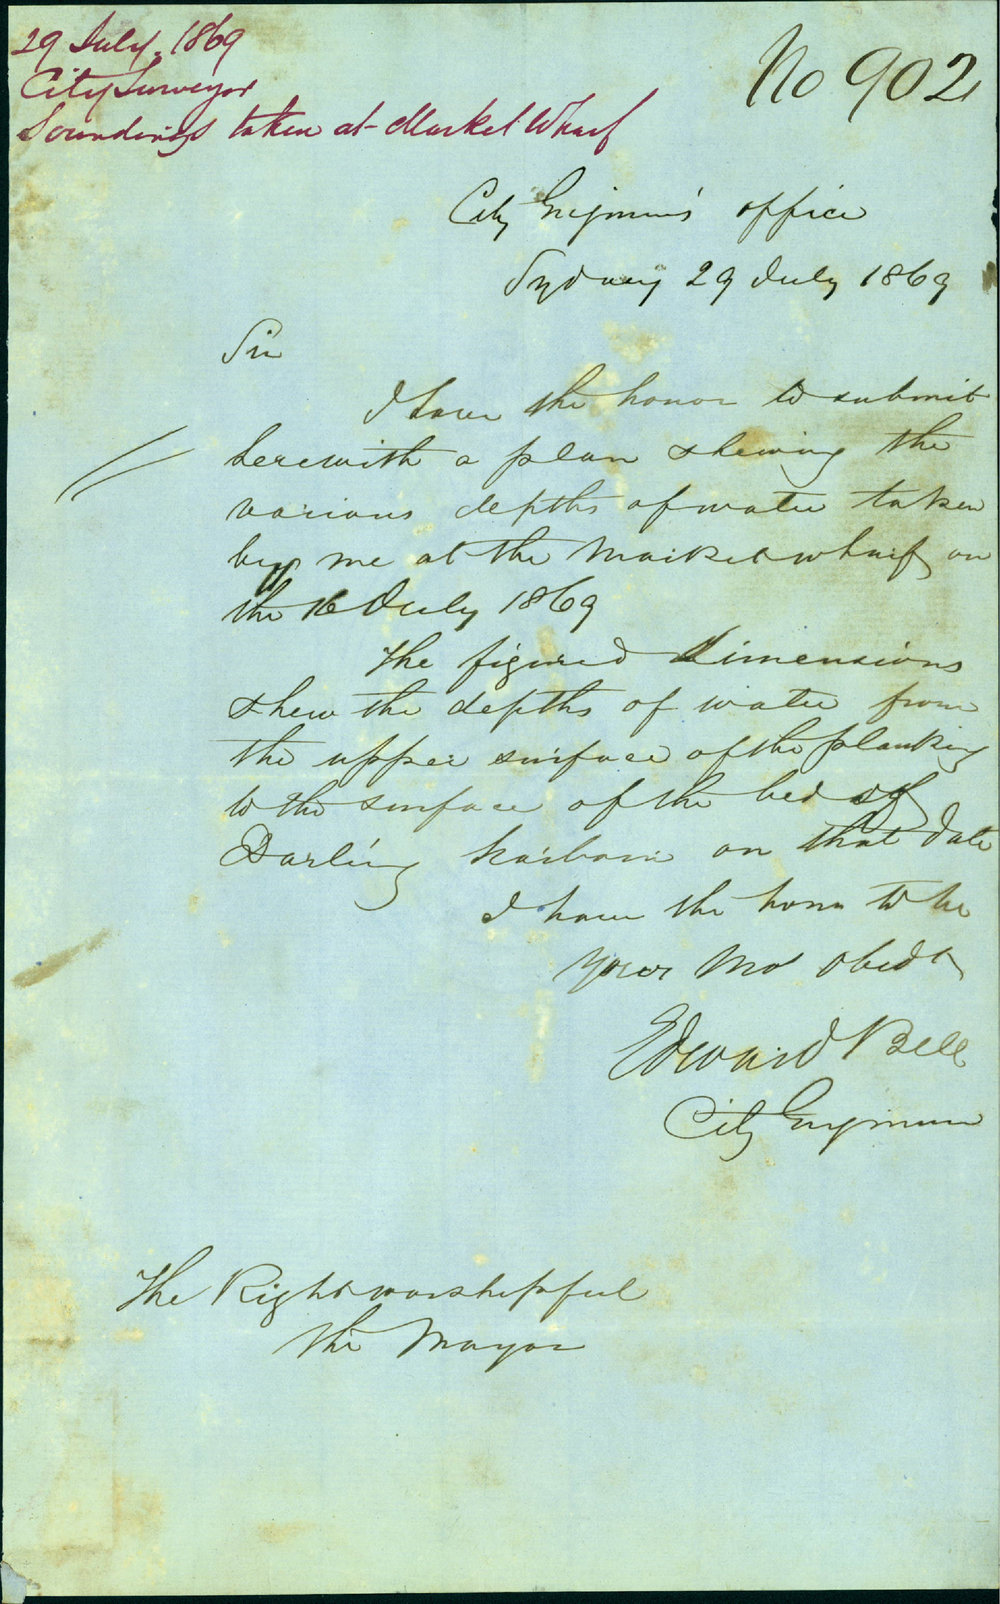 29 July. 1869
City Surveyor
Soundings taken at Market Wharf
No 902
City Engineer's office
Sydney 29 July 1869
Sir
I have the honor to submit
herewith a plan shewing the
various depths of water taken
by me at the Market wharf on
the 16 July 1869
The figured dimensions
shew the depths of water from
the upper surface of the planking
to the surface of the bed of
Darling harbour on that date
I have the honor to be
Your Mo obedt
Edward Bell
City Engineer
The Right worshipful
the Mayor